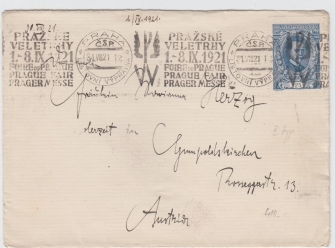 1/IX.1921.
PRAHA
PRAŽSKÉ
VELETRHY
1.-8.IX.1921
FOIRE DE PRAGUE
PRAGUE FAIR
PRAGER MESSE
ČSP
PRAHA
ČSP
PRAŽSKÉ
VELETRHY
1.-8.IX.1921
FOIRE DE PRAGUE
PRAGUE FAIR
PRAGER MESSE
Fräulein Marianne Herzog
derzeit in
Gumpoldskirchen
Proseggerstr. 13
Austria